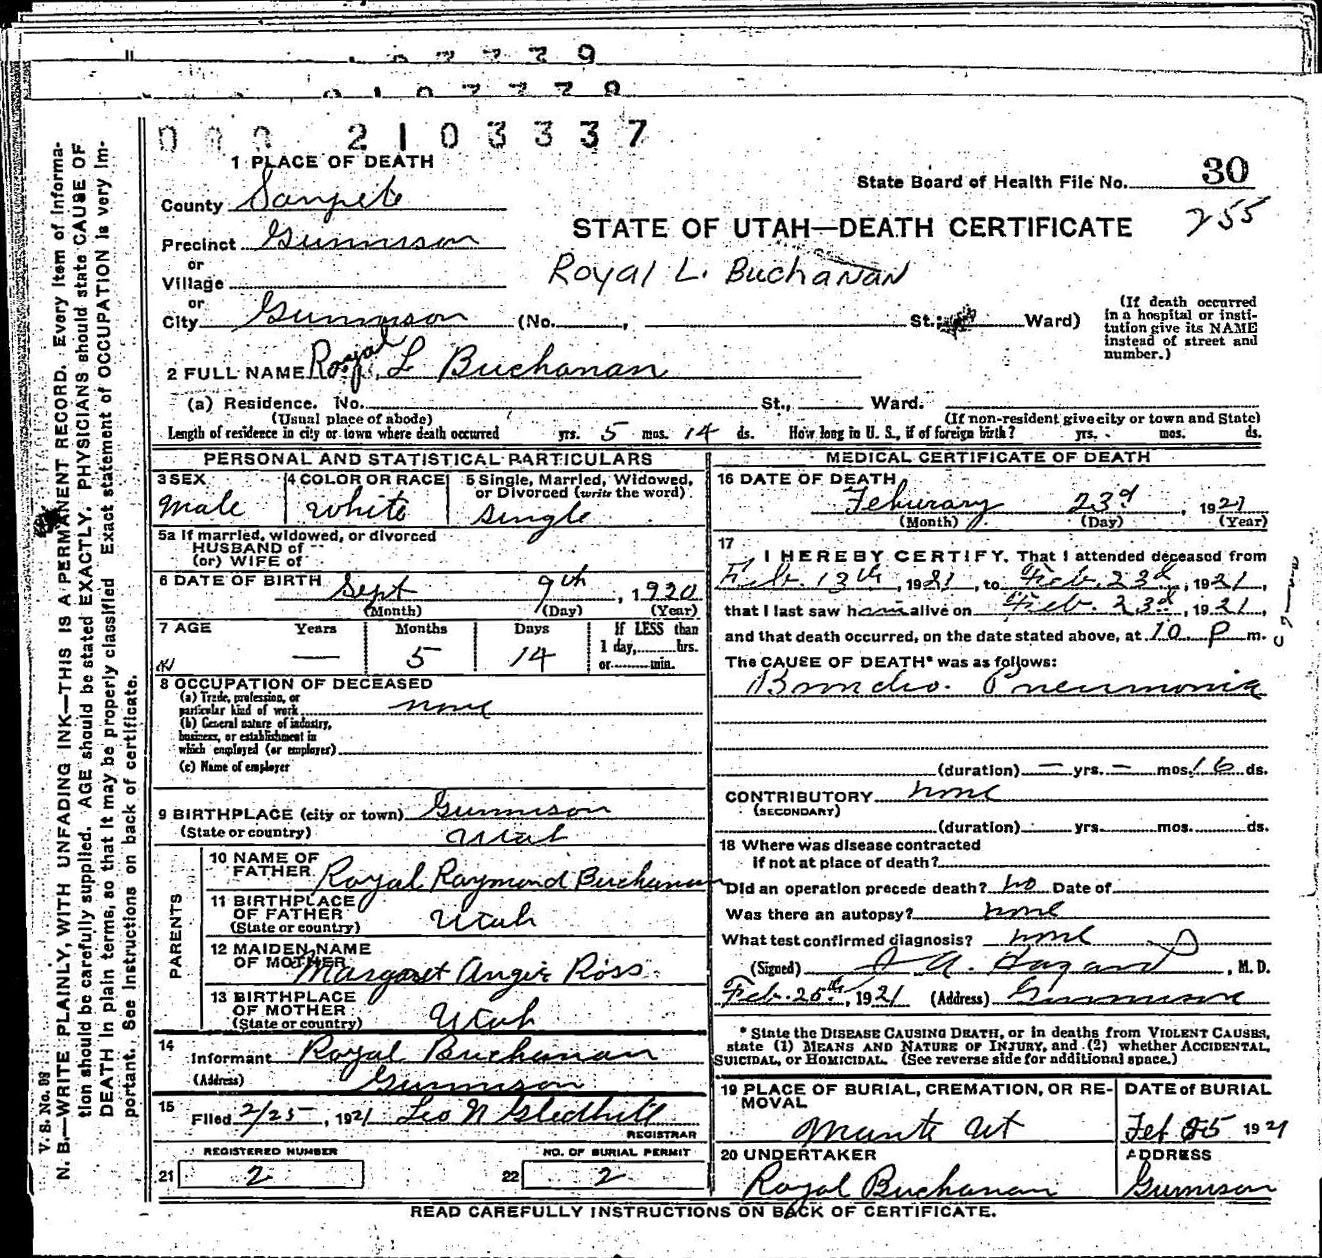 2103337
1 PLACE OF DEATH
State Board of Health File No. 30
255
County Sanpete
STATE OF UTAH—DEATH CERTIFICATE
Precinct Gunnison
or
Village
Royal L. Buchanan
or
City Gunnison (No. , St.; Ward)
(If death occurred in a hospital or institution give its NAME instead of street and number.)
2 FULL NAME Royal L Buchanan
(a) Residence. No. St., Ward.
(Usual place of abode) (If non-resident give city or town and State)
Length of residence in city or town where death occurred yrs. 5 mos. 14 ds. How long in U. S., if of foreign birth? yrs. mos. ds.
PERSONAL AND STATISTICAL PARTICULARS
3 SEX Male
4 COLOR OR RACE White
5 Single, Married, Widowed, or Divorced (write the word) Single
5a If married, widowed, or divorced
HUSBAND of
(or) WIFE of
6 DATE OF BIRTH Sept 9th, 1920
(Month) (Day) (Year)
7 AGE Years Months Days If LESS than
— 5 14 1 day, hrs.
or min.
8 OCCUPATION OF DECEASED
(a) Trade, profession, or
particular kind of work none
(b) General nature of industry,
business, or establishment in
which employed (or employer)
(c) Name of employer
9 BIRTHPLACE (city or town) Gunnison
(State or country) Utah
PARENTS
10 NAME OF
FATHER Royal Raymond Buchanan
11 BIRTHPLACE
OF FATHER Utah
(State or country)
12 MAIDEN NAME
OF MOTHER Margaret Angie Ross
13 BIRTHPLACE
OF MOTHER Utah
(State or country)
14
Informant Royal Buchanan
(Address) Gunnison
15
Filed 2/25, 1921 Leo N Gledhill
REGISTRAR
REGISTERED NUMBER NO. OF BURIAL PERMIT
21 2 22 2
MEDICAL CERTIFICATE OF DEATH
16 DATE OF DEATH
Feburary 23d, 1921
(Month) (Day) (Year)
17
I HEREBY CERTIFY, That I attended deceased from
Feb. 13th, 1921, to Feb. 23d, 1921,
that I last saw him alive on Feb. 23d, 1921,
and that death occurred, on the date stated above, at 10 P m.
The CAUSE OF DEATH* was as follows:
Broncho. Pneumonia
(duration) — yrs. — mos. 16 ds.
CONTRIBUTORY none
(SECONDARY)
(duration) yrs. mos. ds.
18 Where was disease contracted
if not at place of death?
Did an operation precede death? no Date of
Was there an autopsy? none
What test confirmed diagnosis? none
(Signed) A. Hagan, M. D.
Feb. 25th, 1921 (Address) Gunnison
* State the DISEASE CAUSING DEATH, or in deaths from VIOLENT CAUSES,
state (1) MEANS AND NATURE OF INJURY, and (2) whether ACCIDENTAL,
SUICIDAL, or HOMICIDAL. (See reverse side for additional space.)
19 PLACE OF BURIAL, CREMATION, OR RE-
MOVAL
Manti Ut
DATE of BURIAL
Feb 25 1921
20 UNDERTAKER
Royal Buchanan
ADDRESS
Gunnison
READ CAREFULLY INSTRUCTIONS ON BACK OF CERTIFICATE.
V. S. No. 98
N. B.—WRITE PLAINLY, WITH UNFADING INK—THIS IS A PERMANENT RECORD. Every item of informa-
tion should be carefully supplied. AGE should be stated EXACTLY. PHYSICIANS should state CAUSE OF
DEATH in plain terms, so that it may be properly classified. Exact statement of OCCUPATION is very im-
portant. See instructions on back of certificate.